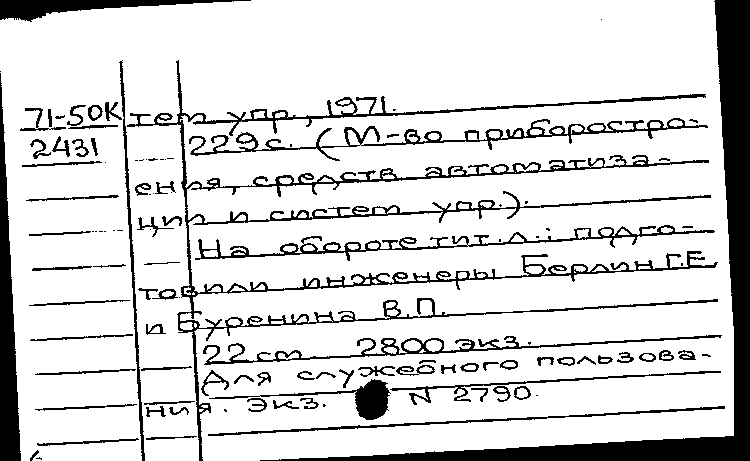 71-50К тем упр., 1971.
2431 229 с. (М-во приборостро-
ения, средств автоматиза-
ции и систем упр.).
На обороте тит. л.: подго-
товили инженеры Берлин Г.Е.
и Буренина В.П.
22 cm 2800 экз.
Для служебного пользова-
ния. Экз. N 2790.